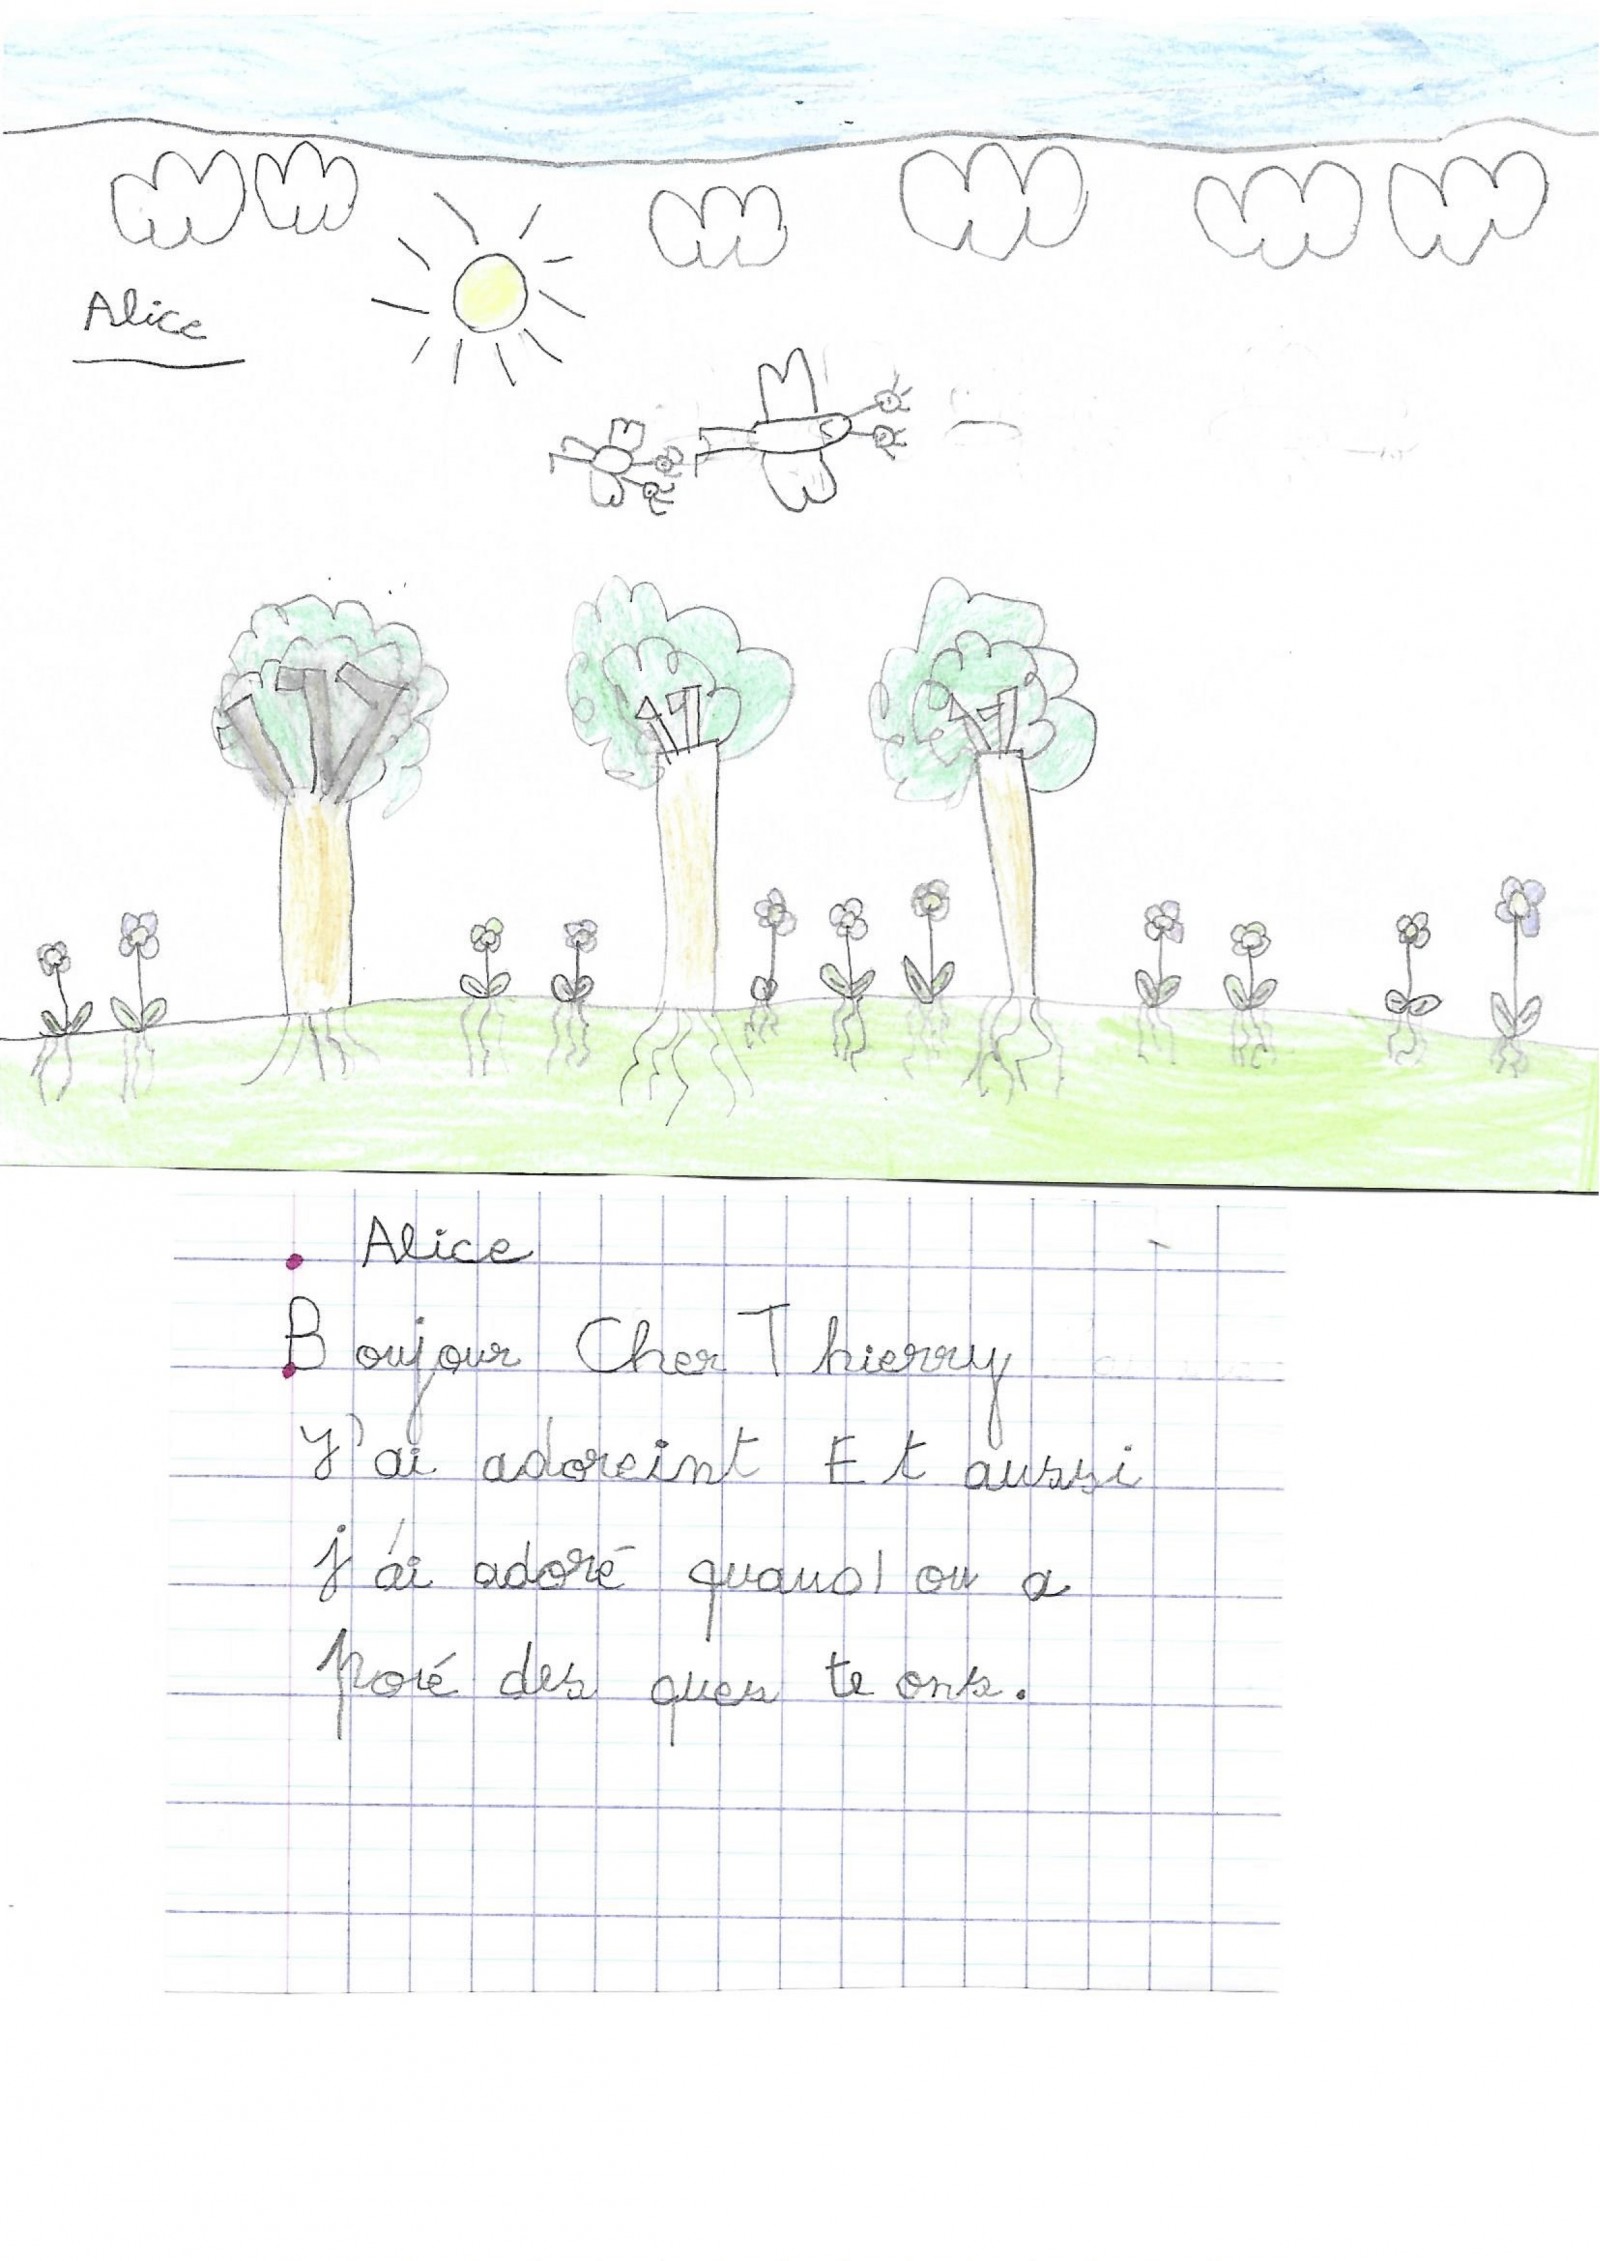 Alice
Alice
Boujour Cher Thierry
J'ai adoreint Et aussi
j'ai adoré quand ou a
poré des ques te ons.